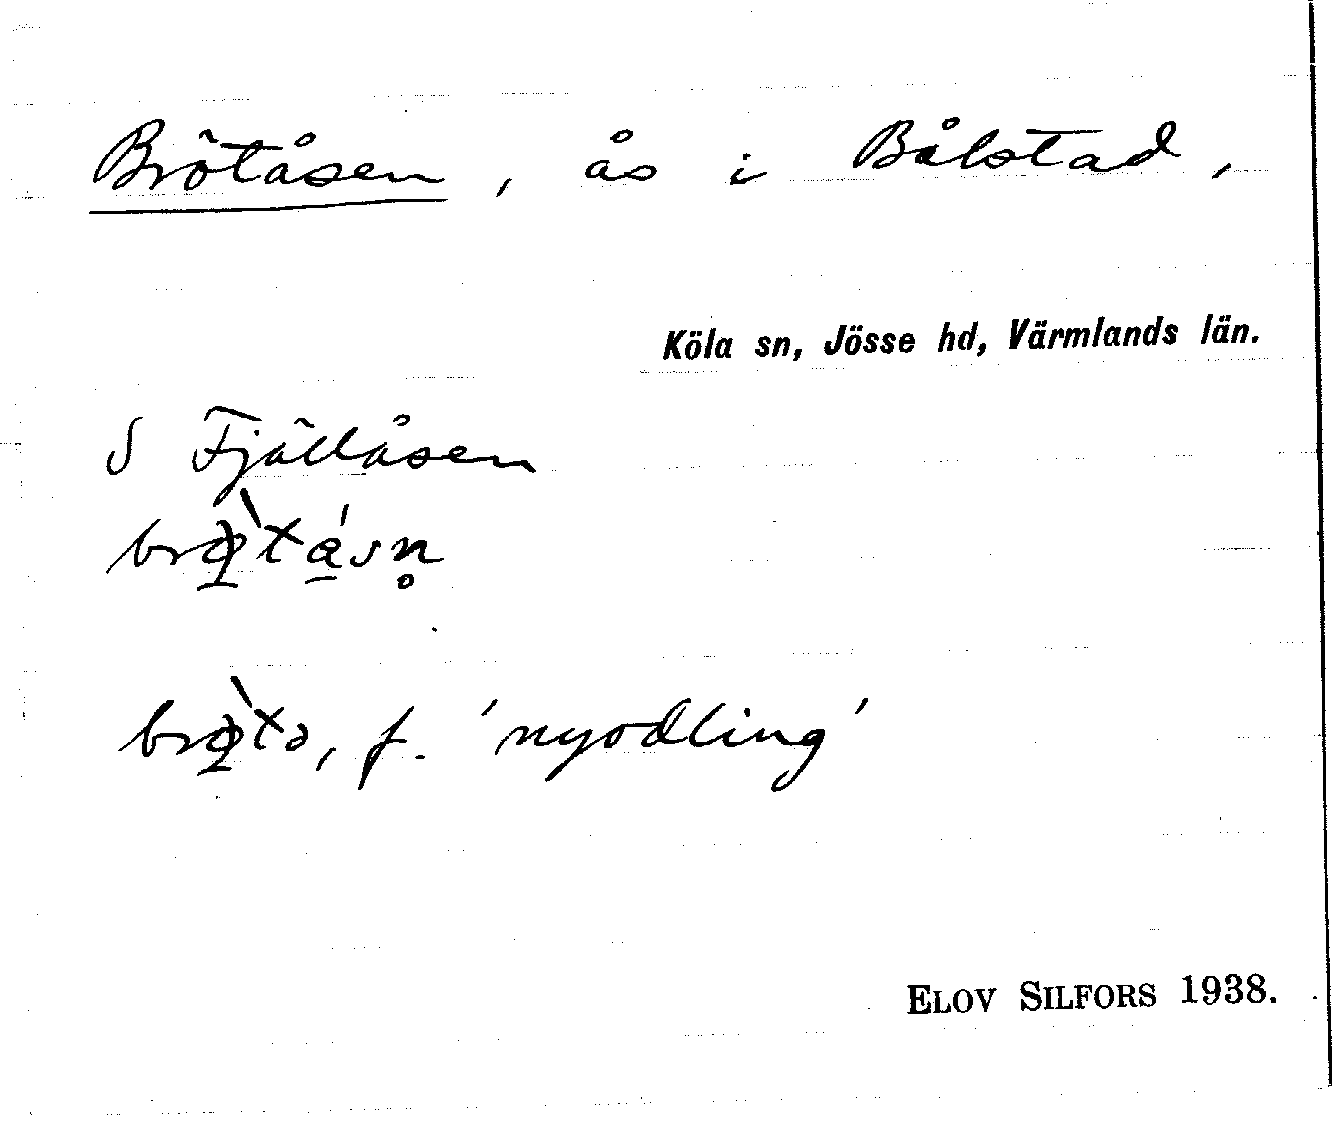 Brötåsen, ås i Bålstad,
Köla sn, Jösse hd, Värmlands län.
S Fjällåsen
brø̱̀tá̱sn̥
brø̱̀tə, f. 'nyodling'
ELOV SILFORS 1938.